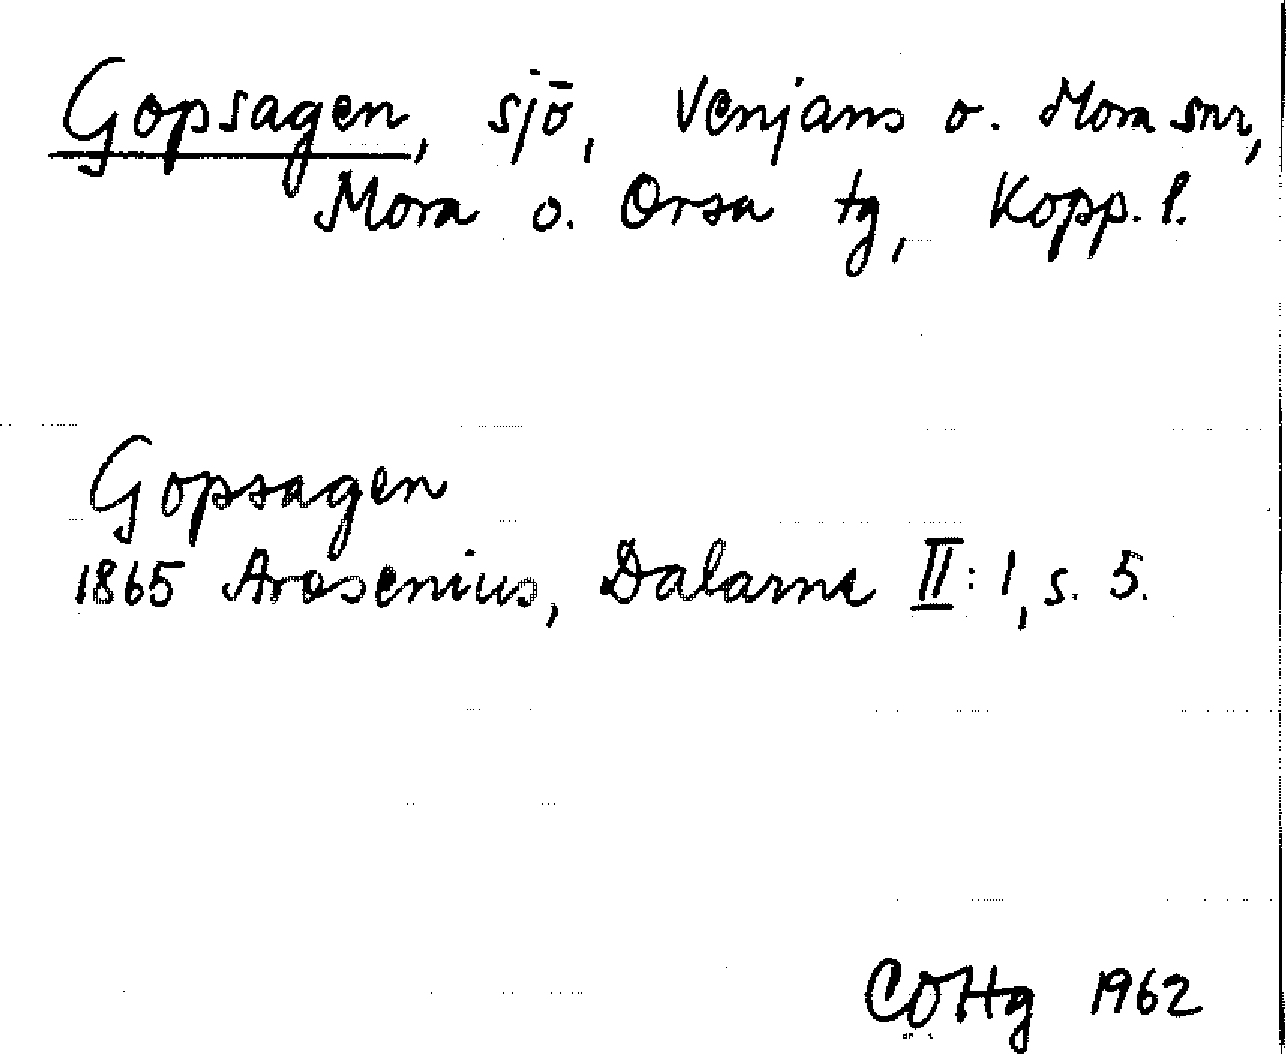 Gopsagen, sjö, Venjans o. Mora snr,
Mora o. Orsa tg, Kopp. l.
Gopsagen
1865 Arosenius, Dalarne II:1, s. 5.
COHg 1962